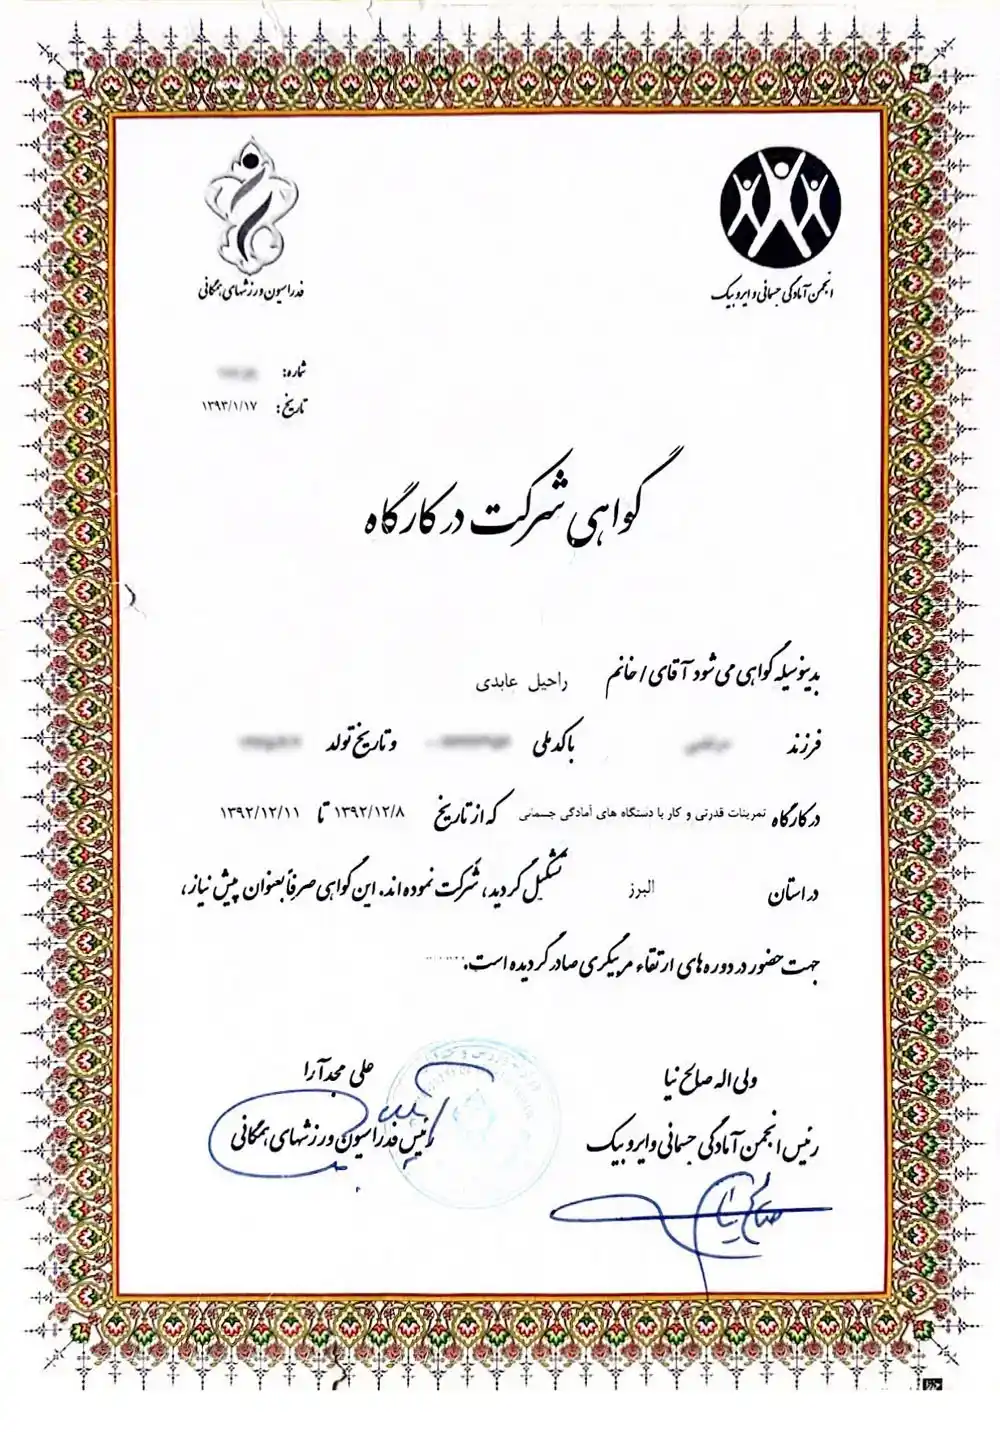 انجمن آمادگی جسمانی و ایروبیک
فدراسیون ورزشهای همگانی
شماره:
تاریخ: ۱۳۹۳/۱/۱۷
گواهی شرکت در کارگاه
بدینوسیله گواهی می شود آقای / خانم راحیل عابدی
فرزند با کد ملی و تاریخ تولد
در کارگاه تمرینات قدرتی و کار با دستگاه های آمادگی جسمانی که از تاریخ ۱۳۹۲/۱۲/۸ تا ۱۳۹۲/۱۲/۱۱
در استان البرز تشکیل گردید، شرکت نموده اند. این گواهی صرفاً بعنوان پیش نیاز،
جهت حضور در دوره های ارتقاء مربیگری صادر گردیده است.
ولی اله صالح نیا
رئیس انجمن آمادگی جسمانی و ایروبیک
علی مجدآرا
رئیس فدراسیون ورزشهای همگانی